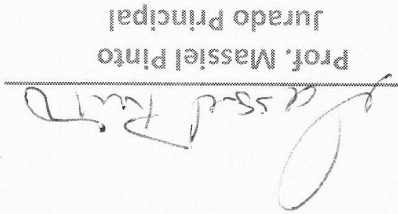 Massiel Pinto
Prof. Massiel Pinto
Jurado Principal